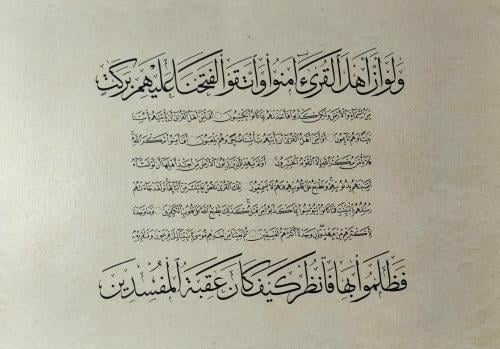 ولو أن أهل القرى ءامنوا واتقوا لفتحنا عليهم بركت
من السماء والأرض ولكن كذبوا فأخذنهم بما كانوا يكسبون أفأمن أهل القرى أن يأتيهم بأسنا
بيتا وهم نائمون أوأمن أهل القرى أن يأتيهم بأسنا ضحى وهم يلعبون أفأمنوا مكر الله
فلا يأمن مكر الله إلا القوم الخسرون أولم يهد للذين يرثون الأرض من بعد أهلها أن لو نشاء
أصبنهم بذنوبهم ونطبع على قلوبهم فهم لا يسمعون تلك القرى نقص عليك من أنبائها ولقد جاءتهم
رسلهم بالبينت فما كانوا ليؤمنوا بما كذبوا من قبل كذلك يطبع الله على قلوب الكفرين وما وجدنا
لأكثرهم من عهد وإن وجدنا أكثرهم لفسقين ثم بعثنا من بعدهم موسى بآيتنا إلى فرعون وملإيه
فظلموا بها فانظر كيف كان عقبة المفسدين